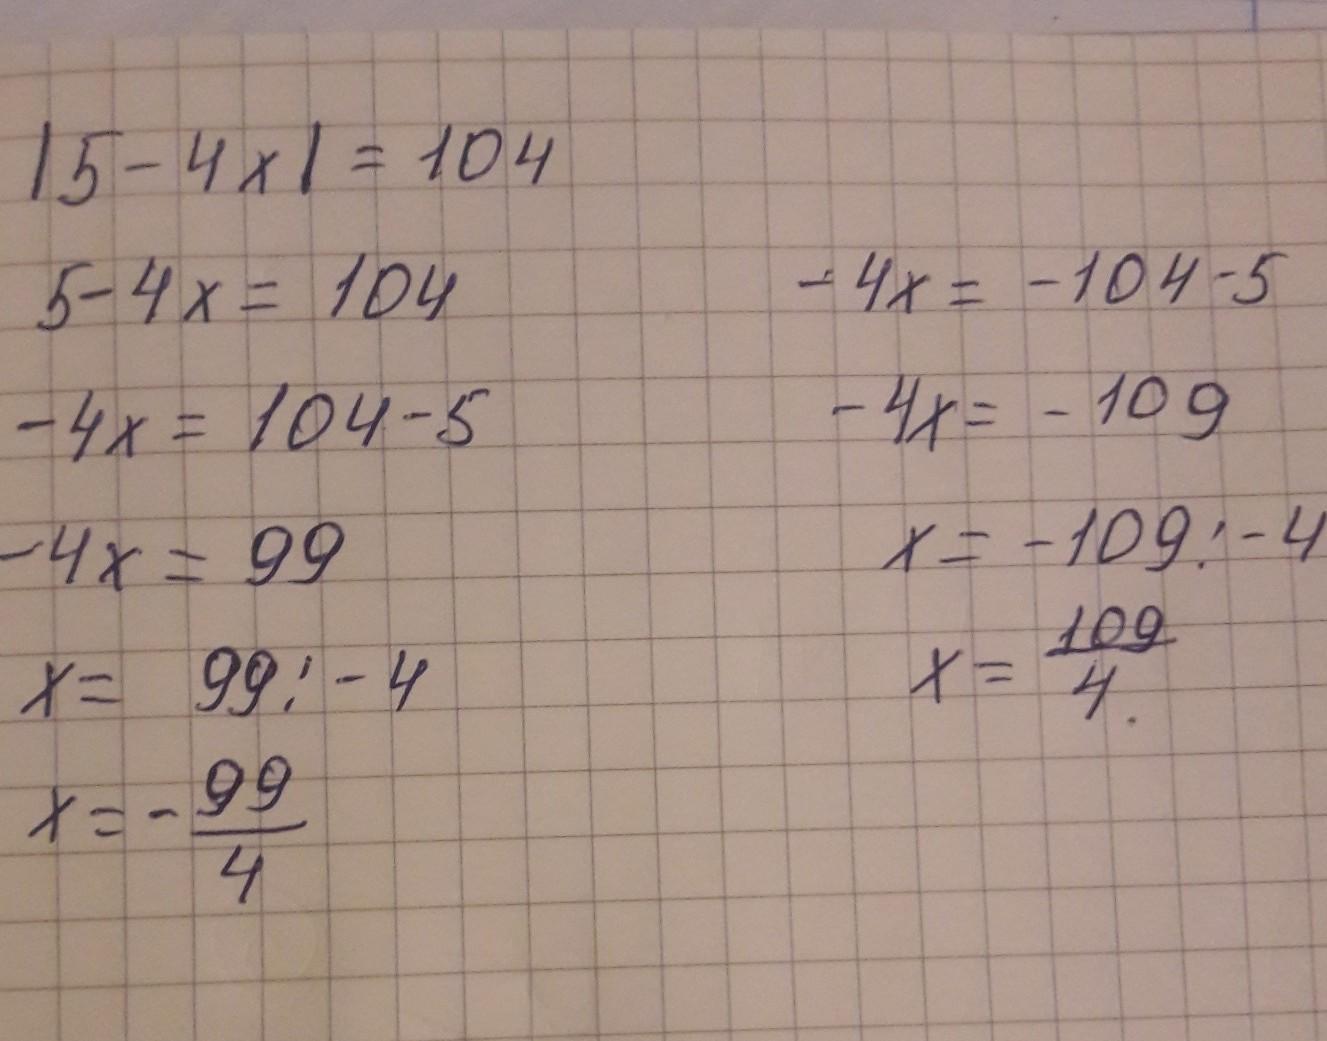 |5-4x|=104
5-4x=104
-4x=104-5
-4x=99
x= 99:-4
x=-99/4
-4x=-104-5
-4x=-109
x=-109:-4
x=109/4.